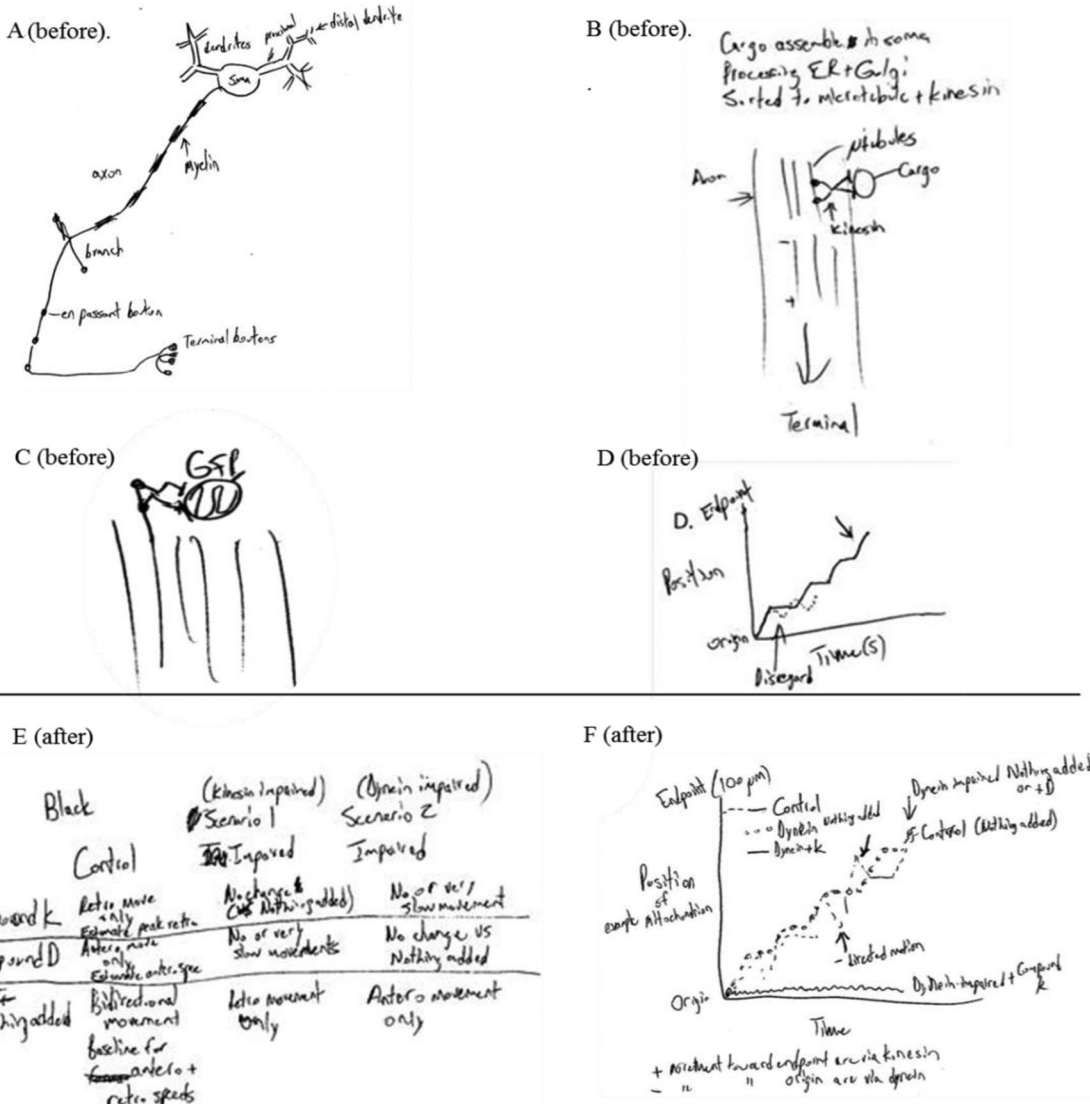 A (before).
dendrites
proximal
distal dendrite
Soma
Myelin
axon
branch
en passant bouton
Terminal boutons
B (before).
Cargo assemble in soma
Processing ER + Golgi
Sorted to microtubule + kinesin
μtubules
Axon
Cargo
kinesin
-
+
Terminal
C (before)
GFP
D (before)
D. Endpoint
Position
Origin
Time (s)
Disregard
E (after)
Black
(Kinesin impaired)
(Dynein impaired)
Scenario 1
Scenario 2
Control
Impaired
Impaired
ound K
Retro move
only
Estimate peak retro
No change
(vs Nothing added)
No or very
slow movement
pound D
Antero move
only
Estimate antero spe
No or very
slow movements
No change vs
Nothing added
hing added
Bidirectional
movement
Baseline for
antero +
retro speeds
Retro movement
only
Antero movement
only
F (after)
Endpoint (100 μm)
Control
Dynein Nothing added
Dynein + K
Dynein impaired Nothing added
or + D
Control (Nothing added)
Position
of
example Mitochondrion
- directed motion
Origin
Dynein-impaired + Compound
K
Time
+ movement toward endpoint are via kinesin
- " " origin are via dynein